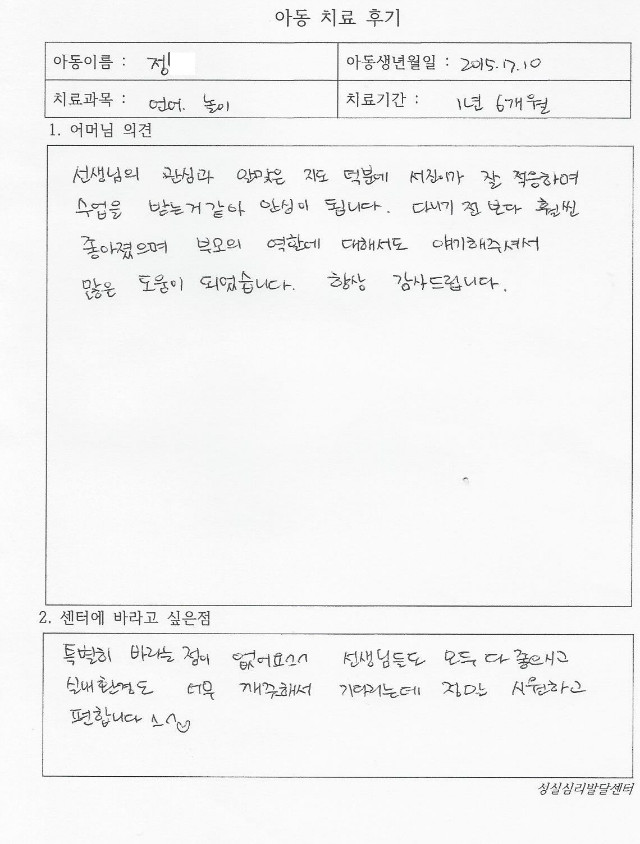 아동 치료 후기
아동이름 : 정
아동생년월일 : 2015.17.10
치료과목 : 언어. 놀이
치료기간 : 1년 6개월
1. 어머님 의견
선생님의 관심과 알맞은 지도 덕분에 서진이가 잘 적응하며
수업을 받는거 같아 안심이 됩니다. 다니기 전 보다 훨씬
좋아졌으며 부모의 역할에 대해서도 얘기해주셔서
많은 도움이 되었습니다. 항상 감사드립니다.
2. 센터에 바라고 싶은점
특별히 바라는 점이 없어요^^ 선생님들도 모두 다 좋으시고
실내환경도 너무 깨끗해서 기다리는데 정말 시원하고
편합니다 ^^
성실심리발달센터